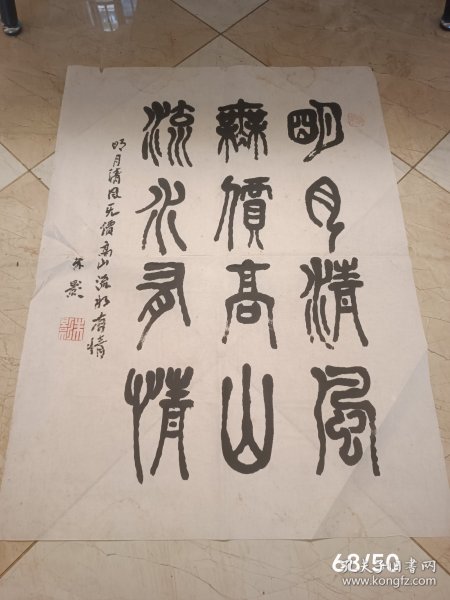 明月清風
無價高山
流水有情
明月清風无價高山流水有情
68/50
孔夫子旧书网
www.kongfz.com